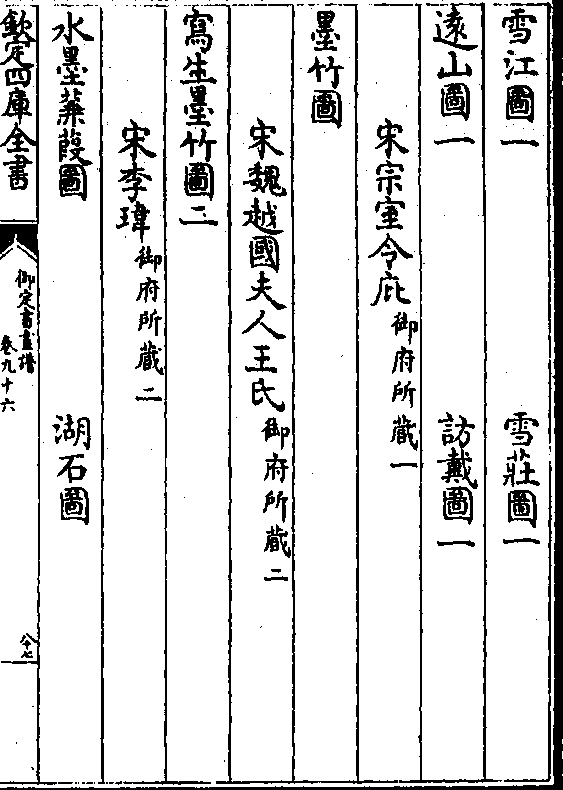 雪江圖一 雪莊圖一
遠山圖一 訪戴圖一
宋宗室令庇御府所藏一
墨竹圖
宋魏越國夫人王氏御府所藏二
寫生墨竹圖二
宋李瑋御府所藏二
水墨蒹葭圖 湖石圖
欽定四庫全書
御定書畫譜
卷九十六
八十七